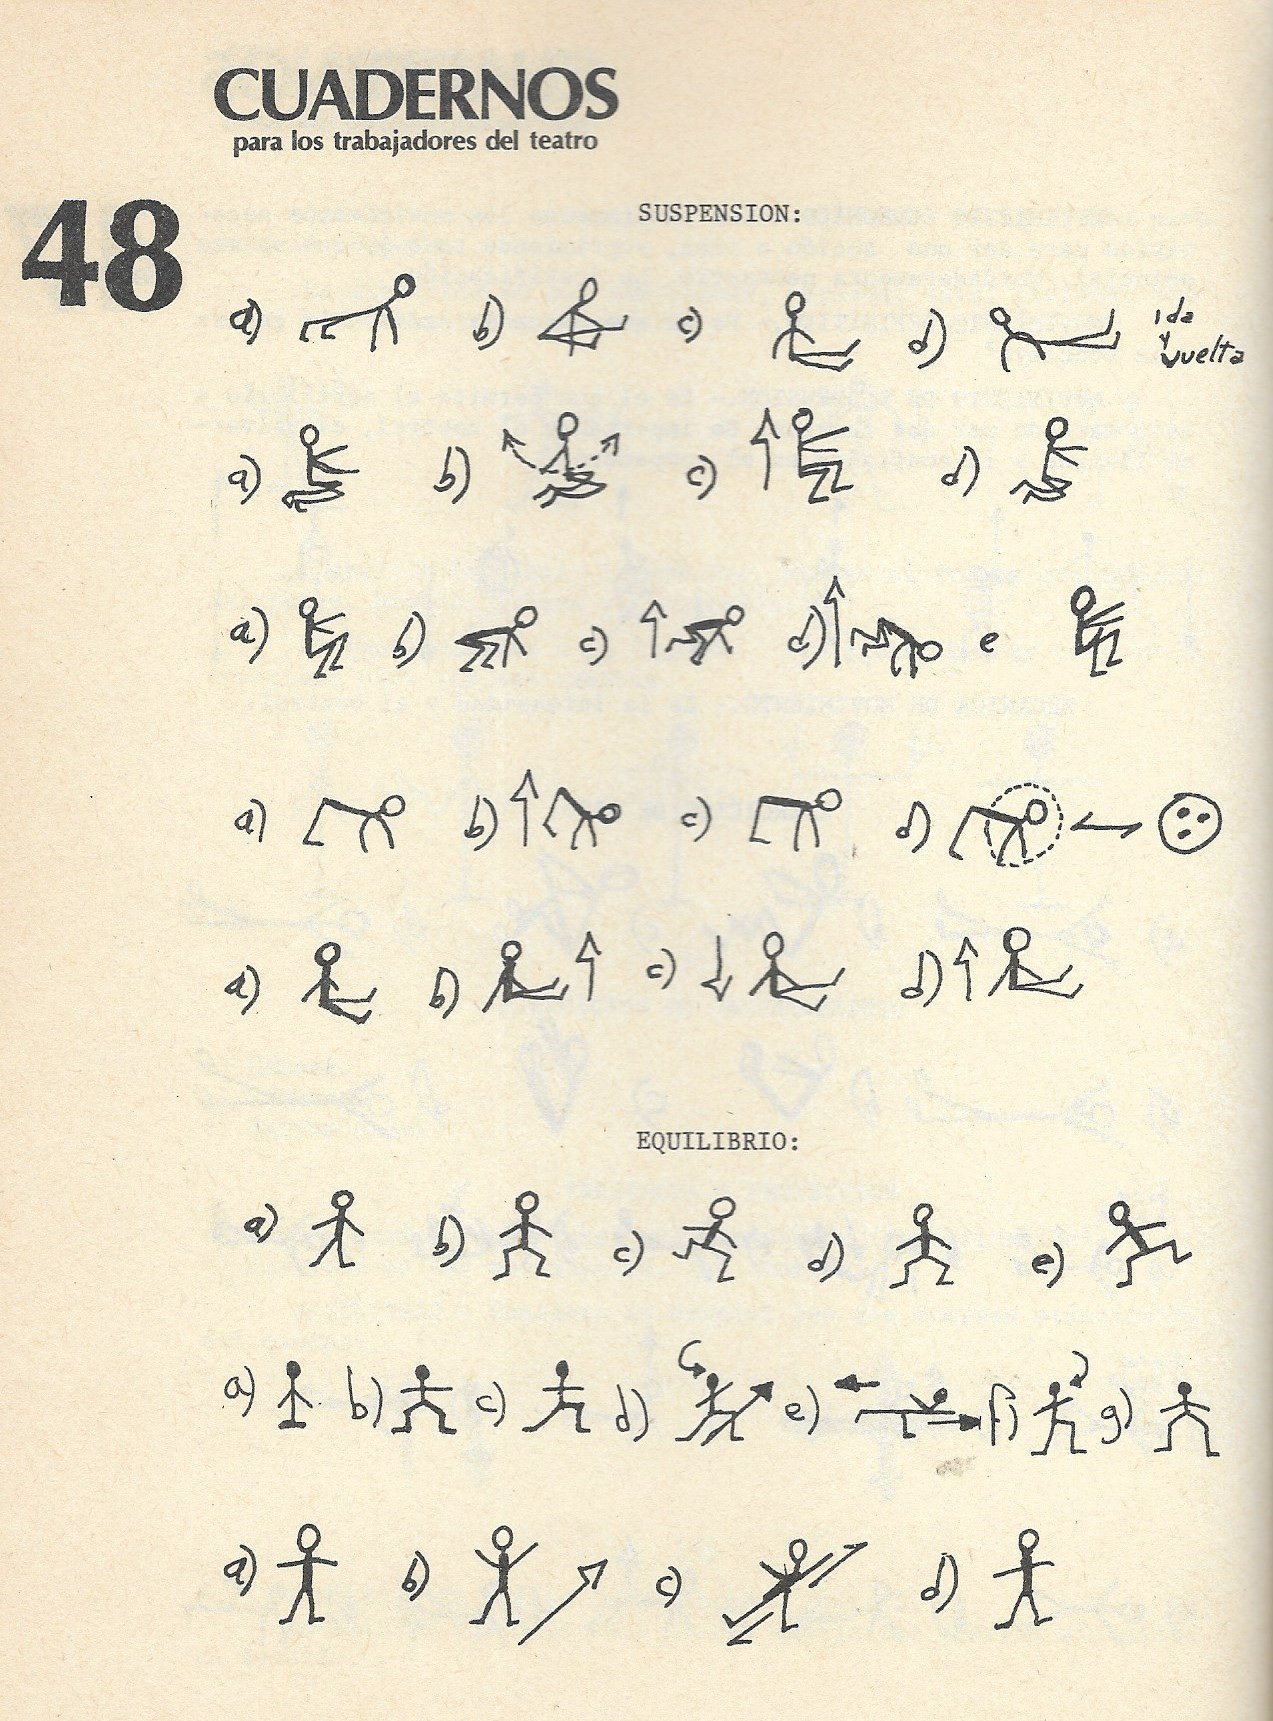 CUADERNOS
para los trabajadores del teatro
48
SUSPENSION:
a) b) c) d) ida y vuelta
a) b) c) d)
a) b) c) d) e
a) b) c) d)
a) b) c) d)
EQUILIBRIO:
a) b) c) d) e)
a) b) c) d) e) f) g)
a) b) c) d)